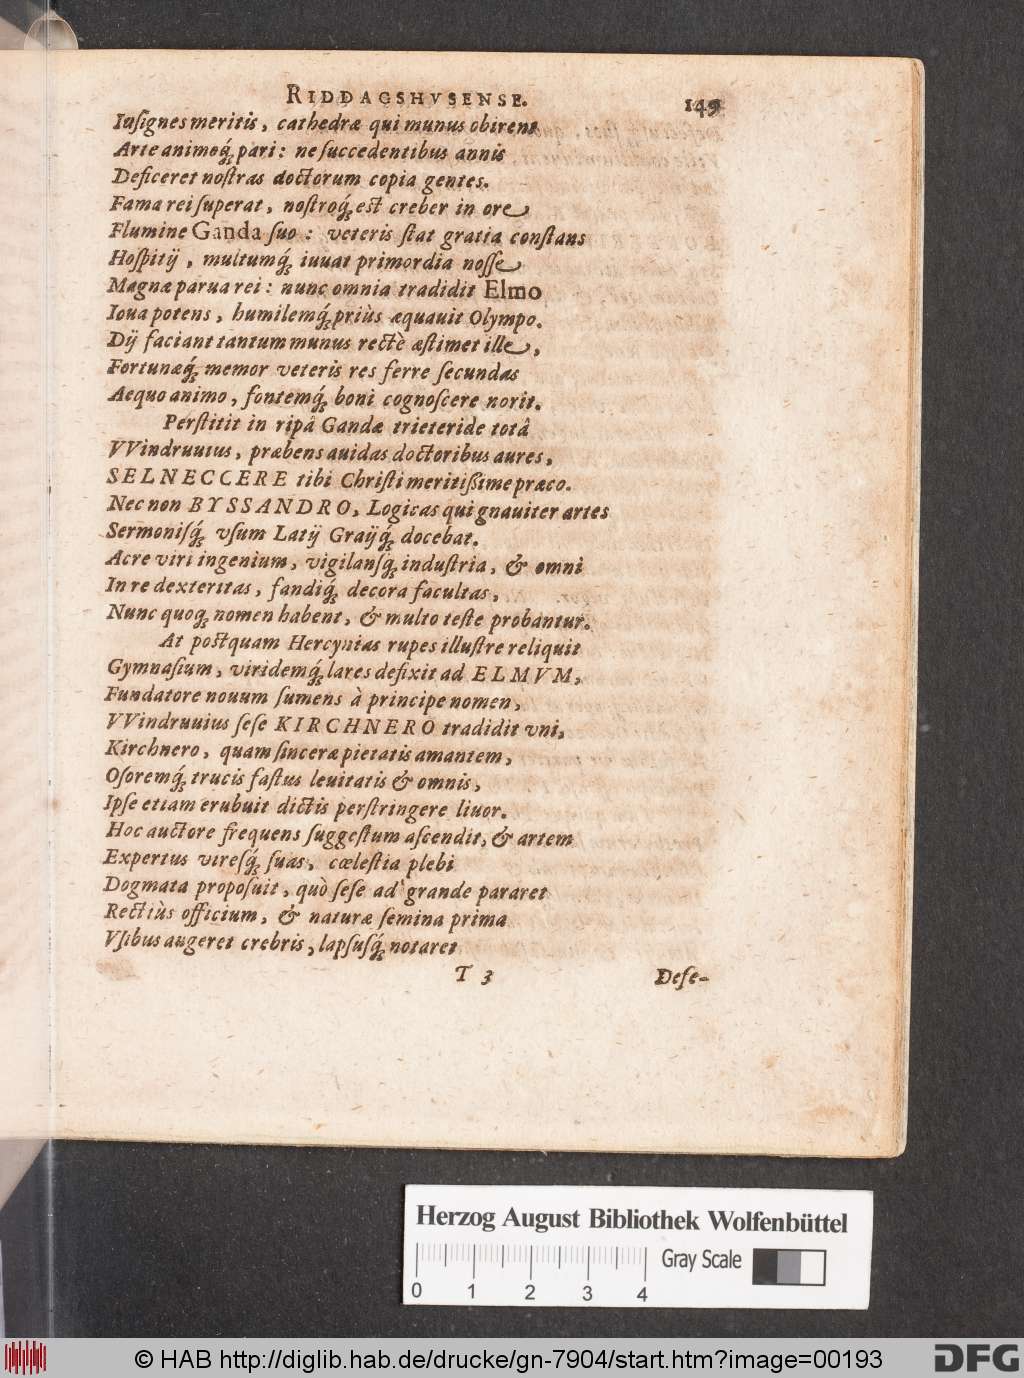 RIDDAGSHVSENSE. 149
Inſignes meritis, cathedræ qui munus obirent
Arte animoq́; pari: ne ſuccedentibus annis
Deficeret noſtras doctorum copia gentes.
Fama rei ſuperat, noſtroq́; eſt creber in ore
Flumine Ganda ſuo: veteris ſtat gratia conſtans
Hoſpitij, multumq́; iuuat primordia noſſe
Magnæ parua rei: nunc omnia tradidit Elmo
Ioua potens, humilemq́; priùs æquauit Olympo.
Dij faciant tantum munus rectè æſtimet ille,
Fortunæq́; memor veteris res ferre ſecundas
Aequo animo, fontemq́; boni cognoſcere norit.
Perſtitit in ripâ Gandæ trieteride totâ
VVindruuius, præbens auidas doctoribus aures,
SELNECCERE tibi Chriſti meritißime præco.
Nec non BYSSANDRO, Logicas qui gnauiter artes
Sermoniſq́; vſum Latij Graijq́; docebat.
Acre viri ingenium, vigilanſq́; induſtria, & omni
In re dexteritas, fandiq́; decora facultas,
Nunc quoq; nomen habent, & multo teſte probantur.
At poſtquam Hercynias rupes illuſtre reliquit
Gymnaſium, viridemq́; lares defixit ad ELMVM,
Fundatore nouum ſumens à principe nomen,
VVindruuius ſeſe KIRCHNERO tradidit vni,
Kirchnero, quam ſinceræ pietatis amantem,
Oſoremq́; trucis faſtus leuitatis & omnis,
Ipſe etiam erubuit dictis perſtringere liuor.
Hoc auctore frequens ſuggeſtum aſcendit, & artem
Expertus vireſq́; ſuas, cœleſtia plebi
Dogmata propoſuit, quò ſeſe ad grande pararet
Rectiùs officium, & naturæ ſemina prima
Vſibus augeret crebris, lapſuſq́; notaret
T 3 Defe-
Herzog August Bibliothek Wolfenbüttel
Gray Scale
0 1 2 3 4
© HAB http://diglib.hab.de/drucke/gn-7904/start.htm?image=00193
DFG